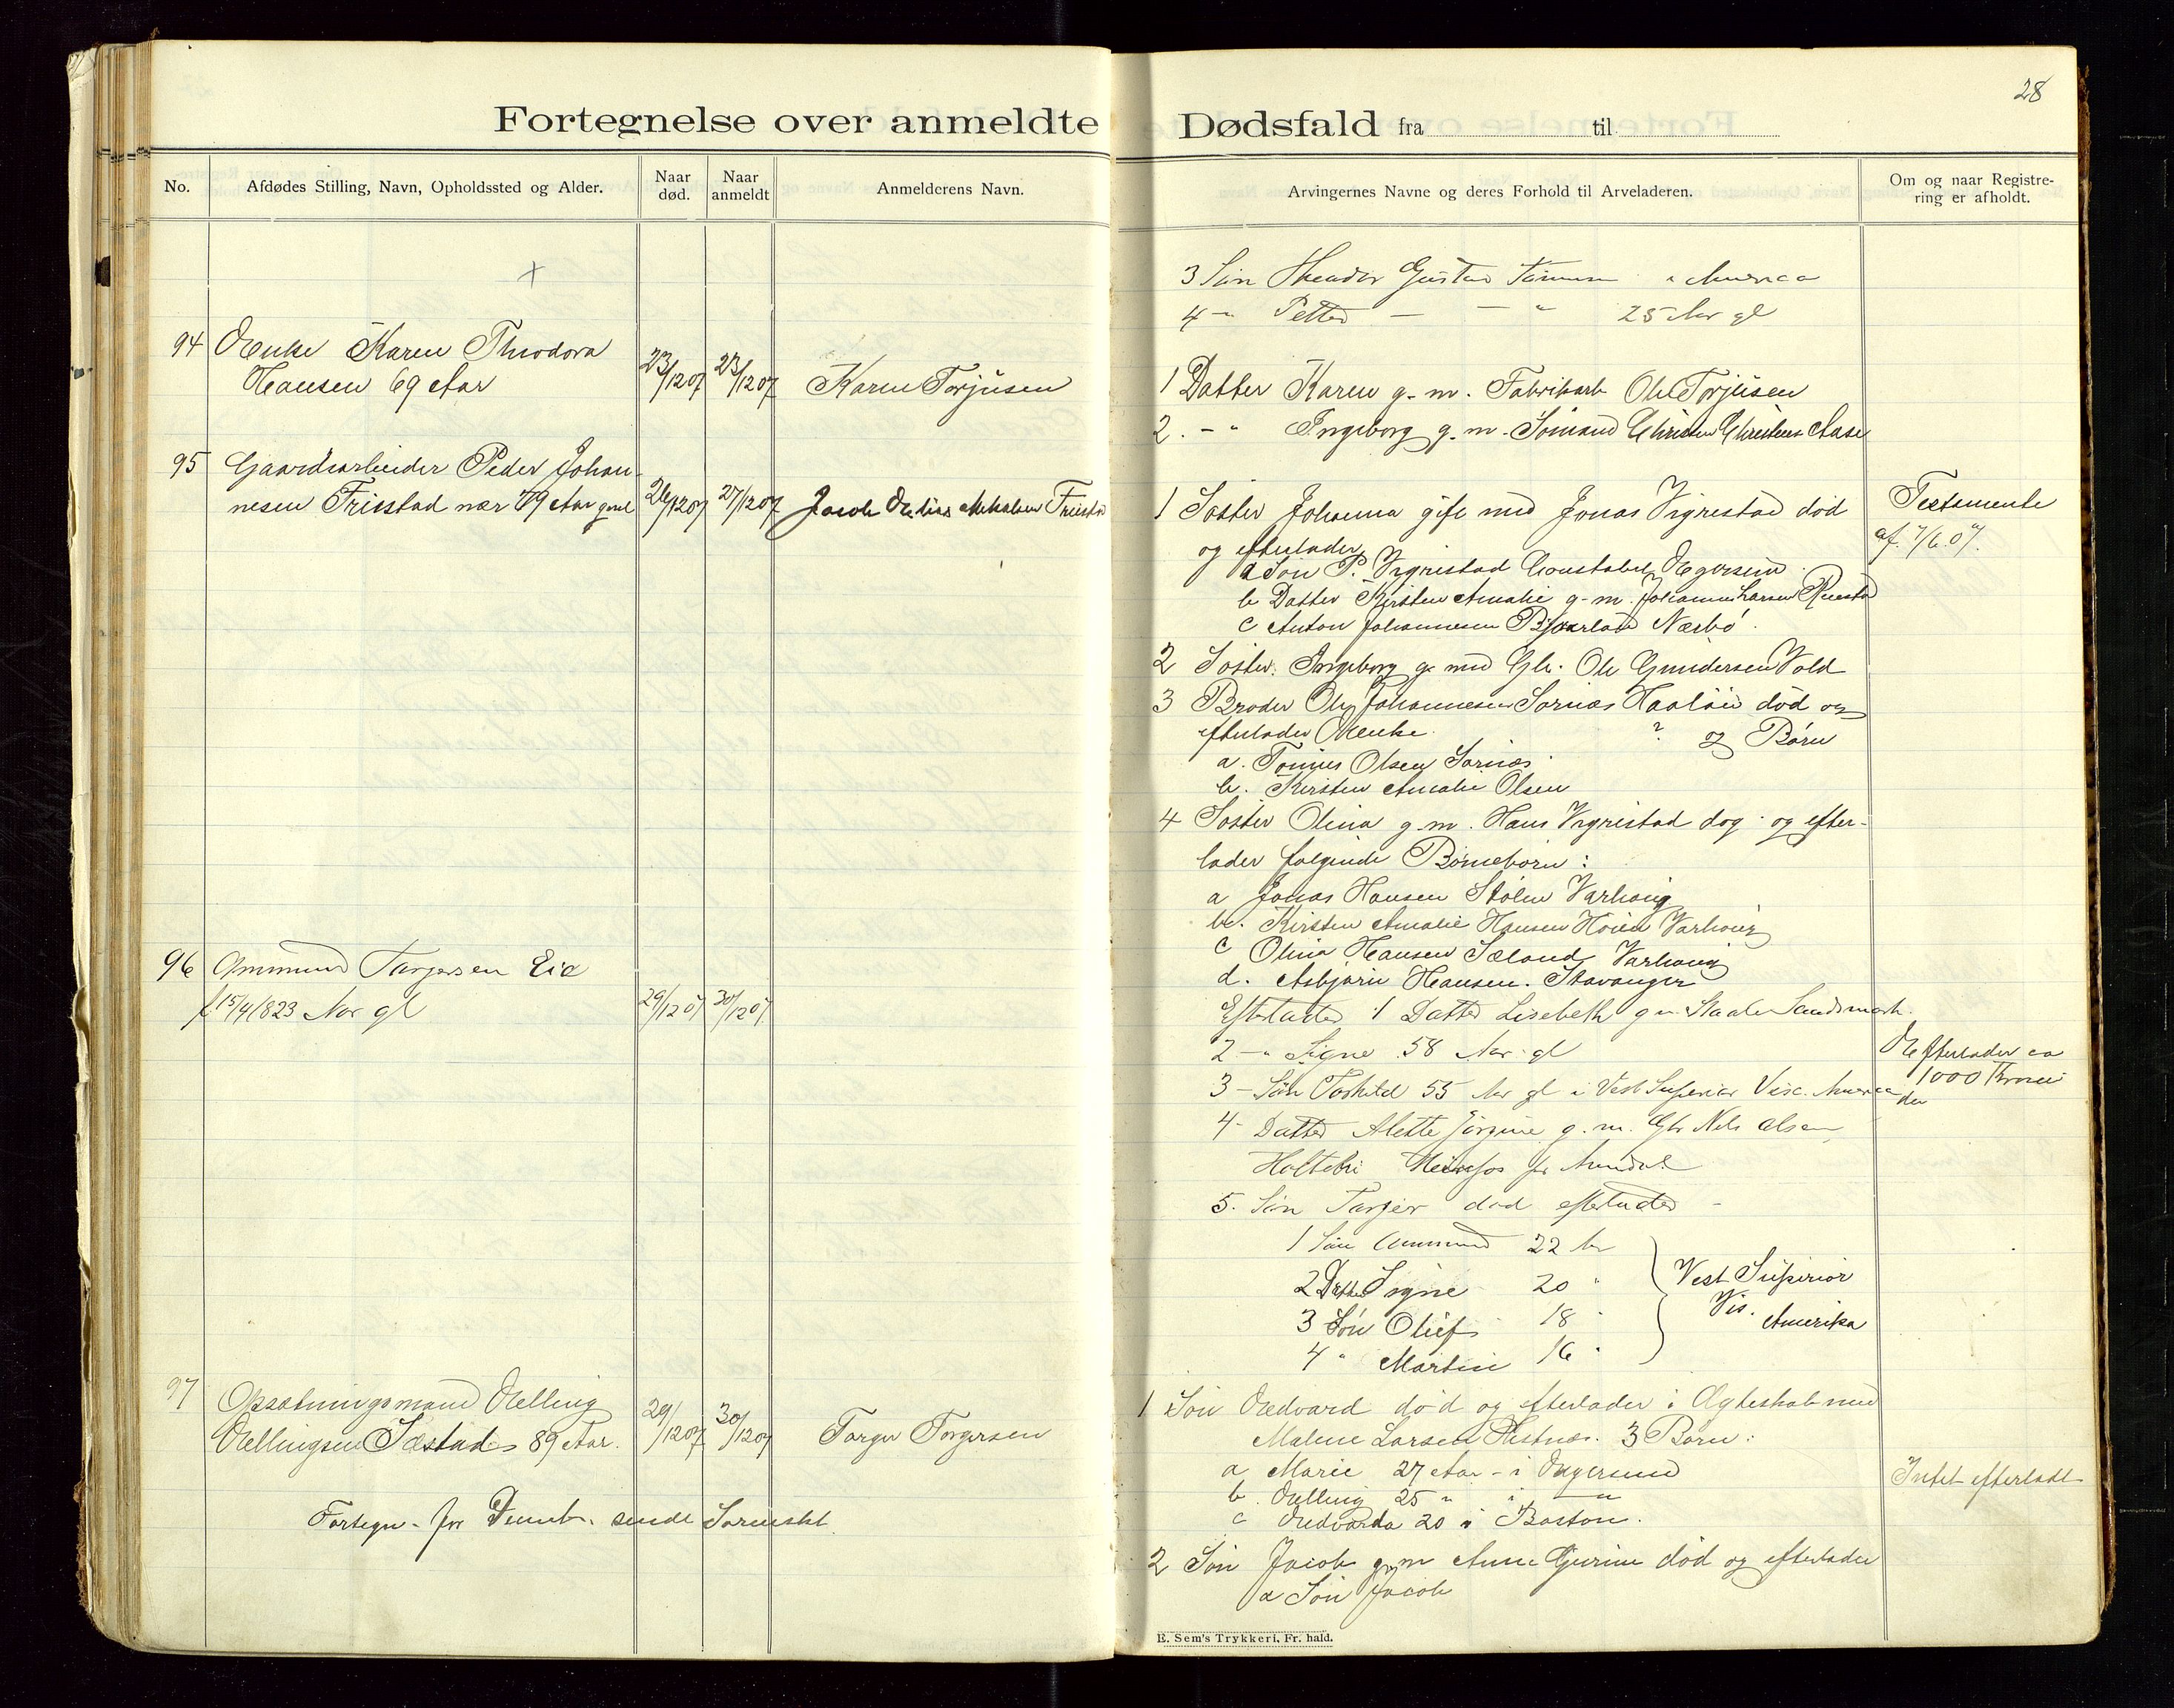 28
Fortegnelse over anmeldte Dødsfald fra til
No.
Afdødes Stilling, Navn, Opholdssted og Alder.
Naar død.
Naar anmeldt
Anmelderens Navn.
Arvingernes Navne og deres Forhold til Arveladeren.
Om og naar Registre-
ring er afholdt.
3 Søn Theodor Gustav i America
4 -" Petter — — " 25 Aar gl
94 Enke Karen Theodora
Hansen 69 Aar 23/12 07 23/12 07 Karen Torjusen
1 Datter Karen g. m. Fabrikarb Ole Torjusen
2. -" Ingeborg g. m. Sömand Christen Aase
95 Gaardsarbeider Peder Johan-
nesen Friestad nær 79 Aar gml 26/12 07 27/12 07 Jacob Friestad
1 Søster Johanna gift med Jonas Vigrestad död
og efterlader
a Søn P. Vigrestad Constabel Egersund
b Datter Kirsten Amalie g. m. Johannes Larsen
c Anton Johannesen Bjaarland Nærbö.
Testamente
af 7/6 07.
2 Søster Ingeborg g. med Gbr. Ole Gundersen Vold
3 Broder Ole Johannesen död og
efterlader Enke ? og Børn
a. Tønnes Olsen
b. Kirsten Amalie Olsen
4 Søster Olina g. m. Hans Vigrestad dog og efter-
lader følgende Børnebørn:
a Jonas Hansen Stølen Varhaug
b. Kirsten Amalie Hansen Høien Varhaug
c Olina Hansen Sæland Varhaug
d. Asbjørn Hansen. Stavanger
96 Ommund Tarjersen Eie
f. 15/4 1823 Aar gl 29/12 07 30/12 07
Efterlader 1 Datter Lisebeth g m. Staale Sandsmark
2 -" Signe 58 Aar gl
3 - Søn Torkild 55 Aar gl i Vest Superior Visc. America
4 - Datter Alette Jørgine g. m. Gbr Nils Olsen
Arendal
5. Søn Tarjer død efterlader -
1 Søn Ommund 22 Aar
2 Datter Signe 20 "
3 Søn Oluf 18 "
4 " Martin 16 "
Vest Superior
Vis. Amerika
Efterlader ca
1000 Kroner
97 Opsætningsmand Elling
Ellingsen Sæstad 89 Aar. 29/12 07 30/12 07 Targer Torgersen
1 Søn Edvard död og efterlader i Ægteskab med
Malene Larsen 3 Børn:
a Marie 27 Aar - i Egersund
b. Elling 25 " i — " —
c Edvarda 20 i Boston.
Intet efterladt
2 Søn Jacob g. m Anne Gurine død og efterlader
a Søn Jacob
Fortegn. for Decmb. sendt
E. Sem's Trykkeri, Fr. hald.